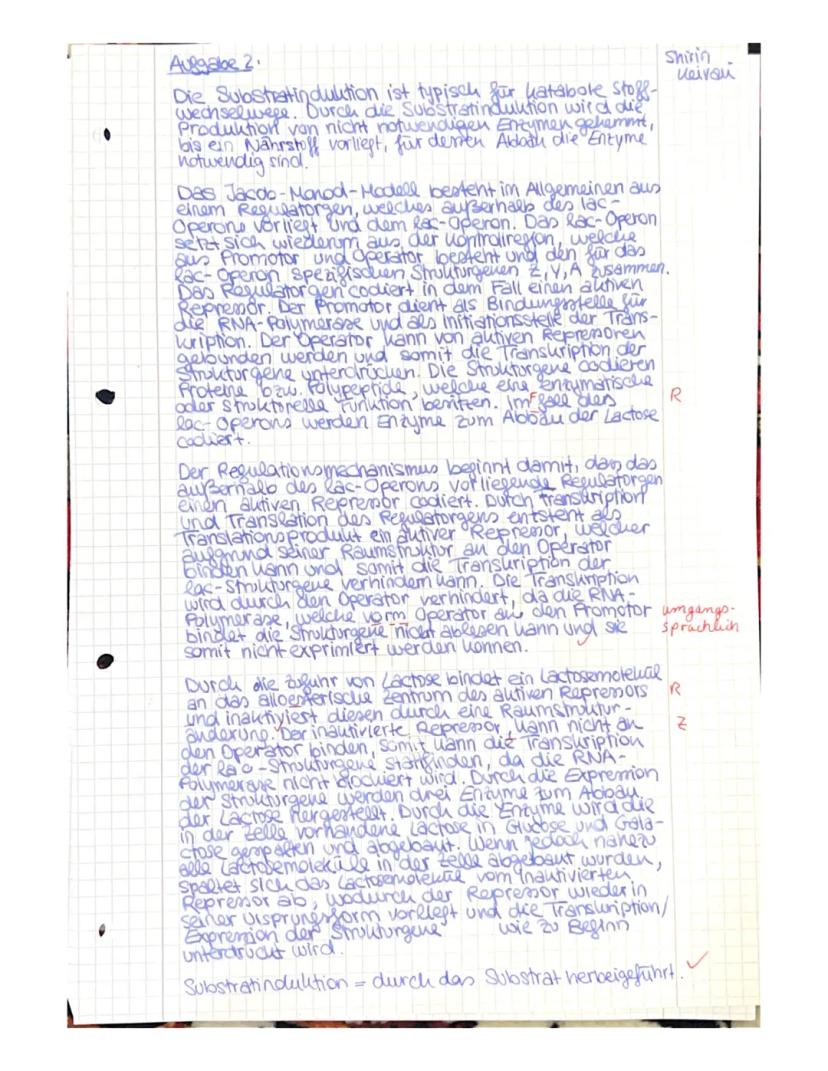 Aufgabe 2.
Shirin
Keivani
Die Substratinduktion ist typisch für katabole Stoff-
wechselwege. Durch die Substratinduktion wird die
Produktion von nicht notwendigen Enzymen gehemmt,
bis ein Nährstoff vorliegt, für dessen Abbau die Enzyme
notwendig sind.
Das Jacob-Monod-Modell besteht im Allgemeinen aus
einem Regulatorgen, welches außerhalb des lac-
Operons vorliegt und dem lac-Operon. Das lac-Operon
setzt sich wiederum aus der Kontrollregion, welche
aus Promotor und Operator besteht und den für das
lac-Operon spezifischen Strukturgenen Z, Y, A zusammen.
Das Regulatorgen codiert in dem Fall einen aktiven
Repressor. Der Promotor dient als Bindungsstelle für
die RNA-Polymerase und als Initiationsstelle der Trans-
kription. Der Operator kann von aktiven Repressoren
gebunden werden und somit die Transkription der
Strukturgene unterdrücken. Die Strukturgene codieren
Proteine bzw. Polypeptide, welche eine enzymatische
oder strukturelle Funktion besitzen. Im Fall des R
lac-Operons werden Enzyme zum Abbau der Lactose
codiert.
Der Regulationsmechanismus beginnt damit, dass das
außerhalb des lac-Operons vorliegende Regulatorgen
einen aktiven Repressor codiert. Durch Transkription
und Translation des Regulatorgens entsteht als
Translationsprodukt ein aktiver Repressor, welcher
aufgrund seiner Raumstruktur an den Operator
binden kann und somit die Transkription der
lac-Strukturgene verhindern kann. Die Transkription
wird durch den Operator verhindert, da die RNA-
Polymerase, welche vorm Operator an den Promotor umgangs-
bindet die Strukturgene nicht ablesen kann und sie sprachlich
somit nicht exprimiert werden können.
Durch die Zufuhr von Lactose bindet ein Lactosemolekül
an das allosterische Zentrum des aktiven Repressors R
und inaktiviert diesen durch eine Raumstruktur-
änderung. Der inaktivierte Repressor kann nicht an Z
den Operator binden, somit kann die Transkription
der lac-Strukturgene stattfinden, da die RNA-
Polymerase nicht blockiert wird. Durch die Expression
der Strukturgene werden drei Enzyme zum Abbau
der Lactose hergestellt. Durch die Enzyme wird die
in der Zelle vorhandene Lactose in Glucose und Gala-
ctose gespalten und abgebaut. Wenn jedoch nahezu
alle Lactosemoleküle in der Zelle abgebaut wurden,
spaltet sich das Lactosemolekül vom inaktivierten
Repressor ab, wodurch der Repressor wieder in
seiner Ursprungsform vorliegt und die Transkription/
Expression der Strukturgene wie zu Beginn
unterdrückt wird.
Substratinduktion = durch das Substrat herbeigeführt. ✓